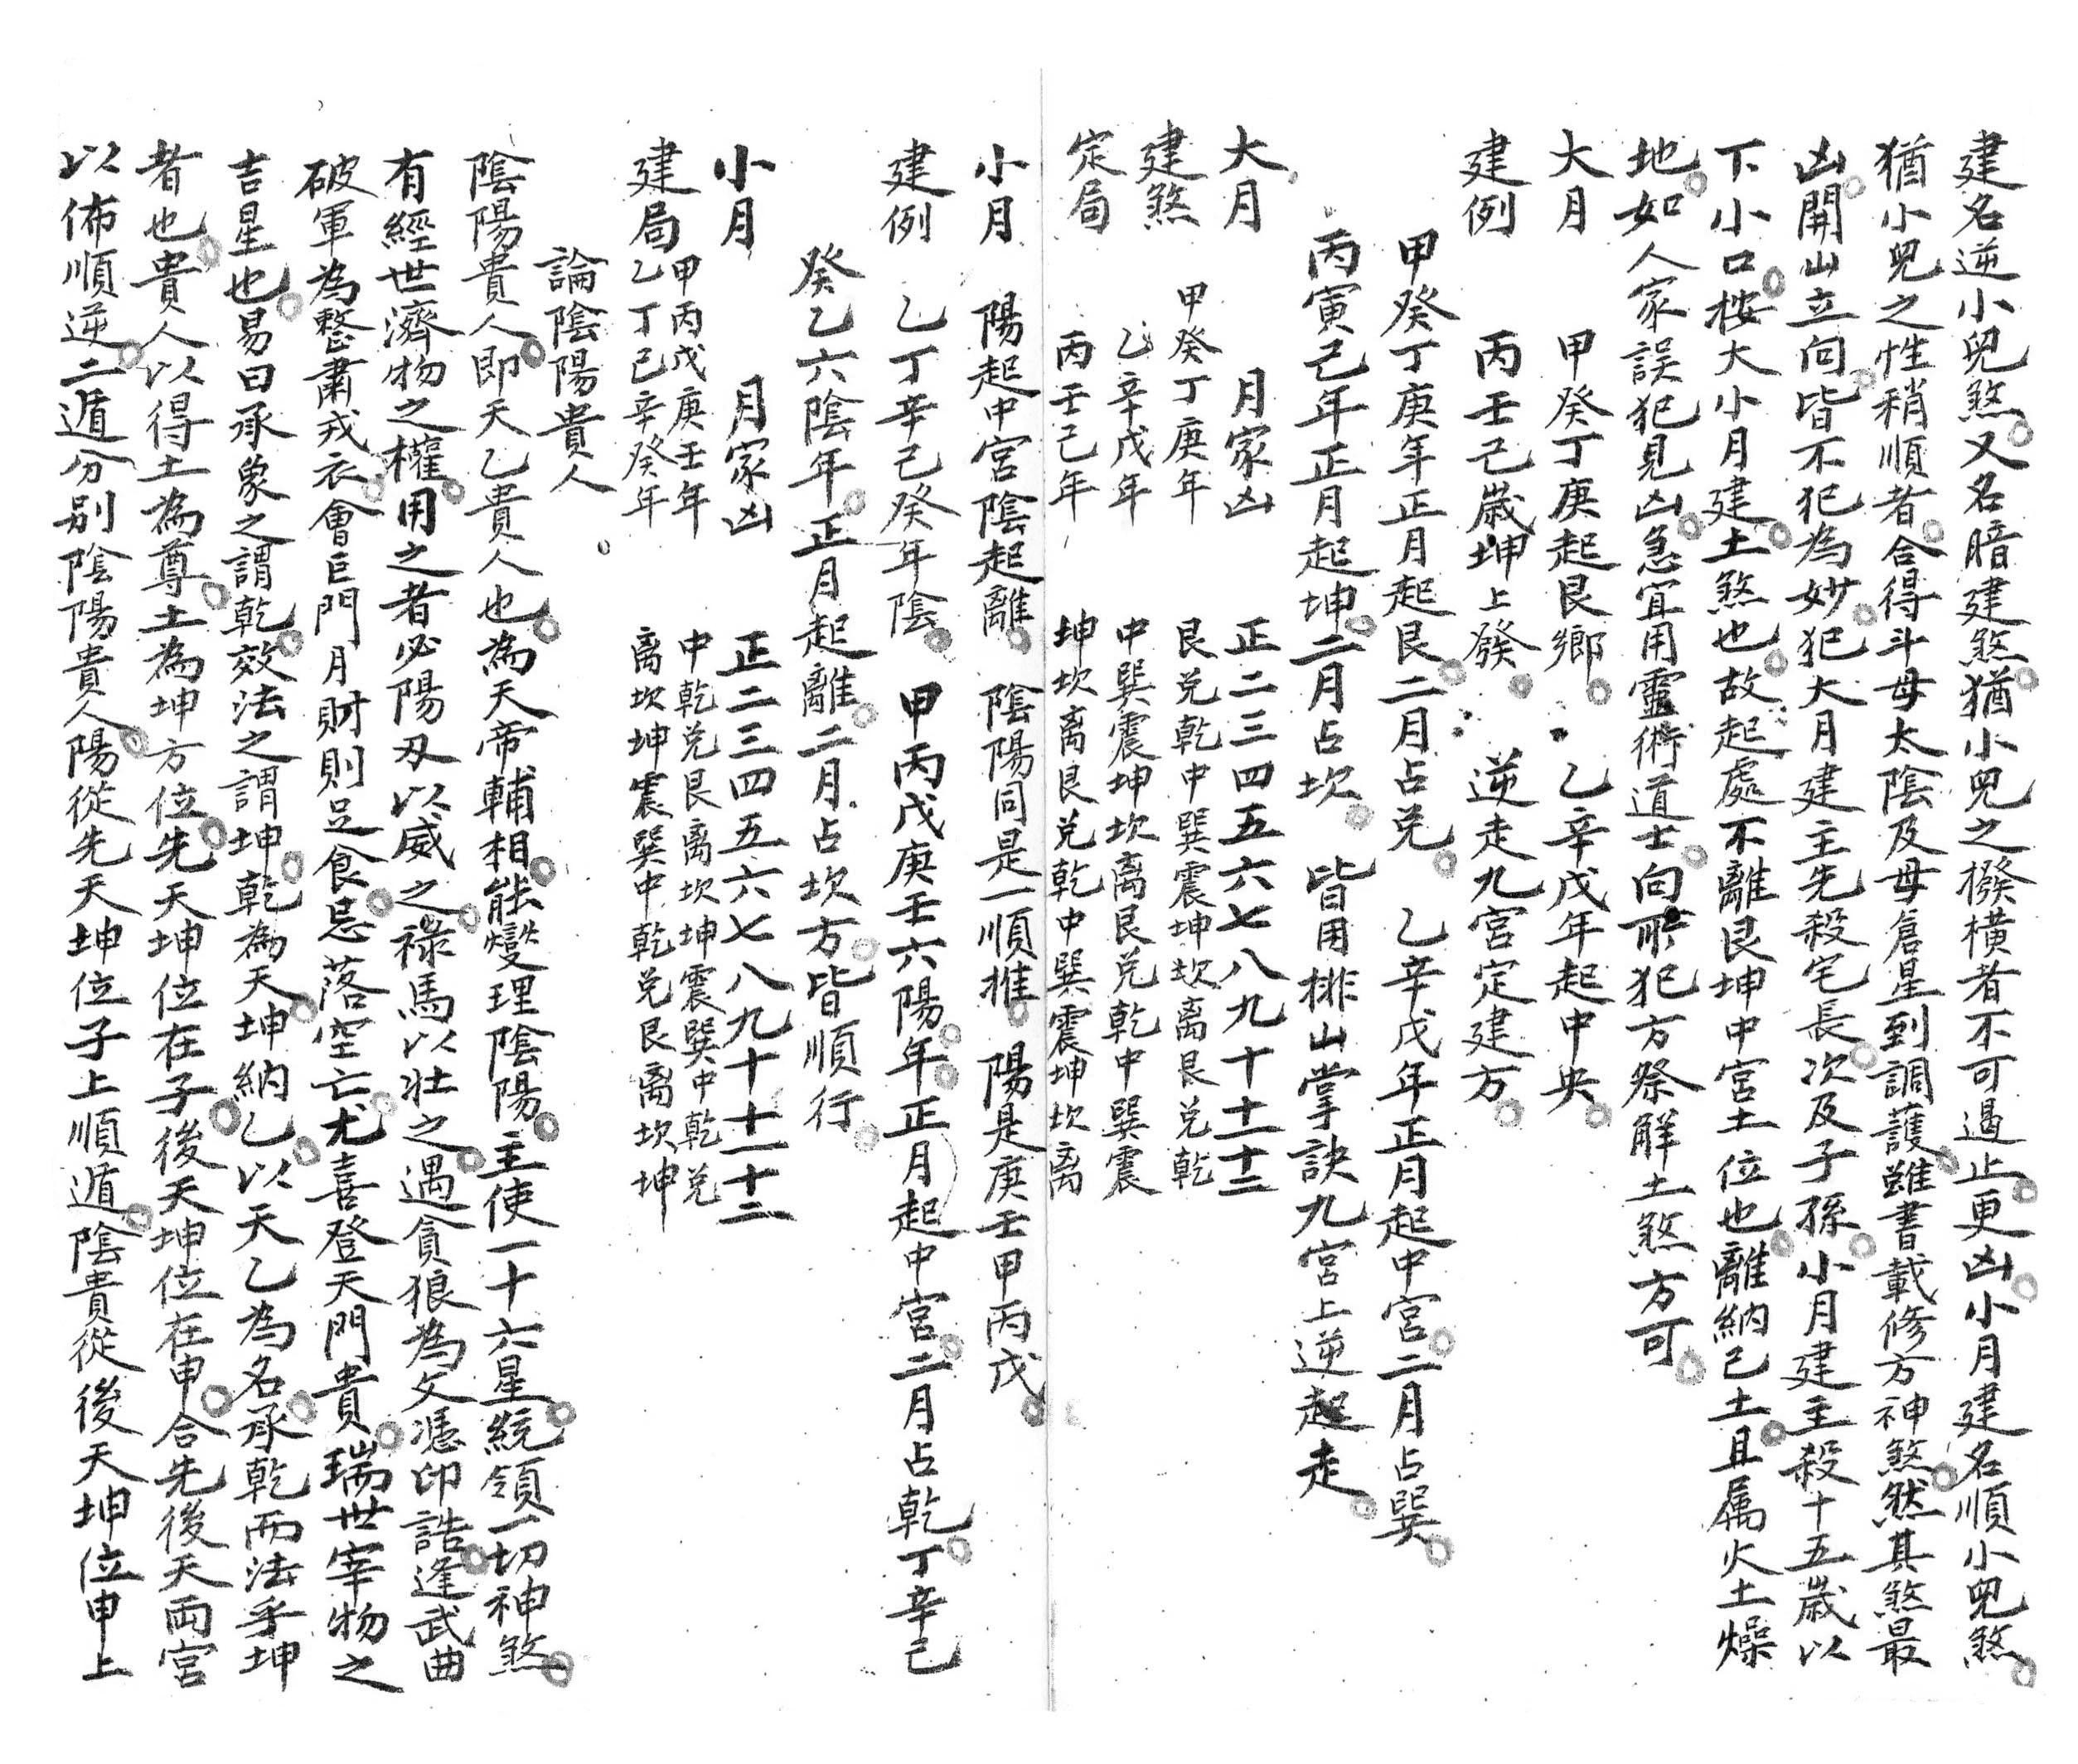 建名逆小兒煞又名暗建煞猶小兒之撥橫者不可遏止更凶小月建名順小兒煞
猶小兒之性稍順者合得斗母太陰及母倉星到調護雖書載修方神煞然其煞最
凶開山立向皆不犯為妙犯大月建主先殺宅長次及子孫小月建主殺十五歲以
下小口按大小月建土煞也故起處不離艮坤中宮土位也離納己土且属火土燥
地如人家誤犯見凶急宜用靈術道士向所犯方祭解土煞方可
大月　甲癸丁庚起艮鄉　乙辛戊年起中央
建例　丙壬己歲坤上發　逆走九宮定建方
甲癸丁庚年正月起艮二月占兌　乙辛戊年正月起中宮二月占巽
丙寅己年正月起坤二月占坎　皆用排山掌訣九宮上逆起走
大月　月家凶　正二三四五六七八九十十一十二
建煞　甲癸丁庚年　艮兌乾中巽震坤坎离艮兌乾
乙辛戊年　中巽震坤坎离艮兌乾中巽震
定局　丙壬己年　坤坎离艮兌乾中巽震坤坎离
小月　陽起中宮陰起離　陰陽同是一順推　陽是庚壬甲丙戊
建例　乙丁辛己癸年陰　甲丙戊庚壬六陽年正月起中宮二月占乾丁辛己
癸乙六陰年正月起離二月占坎方皆順行
小月　月家凶　正二三四五六七八九十十一十二
建局　甲丙戊庚壬年　中乾兌艮离坎坤震巽中乾兌
乙丁己辛癸年　离坎坤震巽中乾兌艮离坎坤
論陰陽貴人
陰陽貴人即天乙貴人也為天帝輔相能燮理陰陽主使一十六星統領一切神煞
有經世濟物之權用之者必陽刃以威之祿馬以壯之遇貪狼為文憑印誥逢武曲
破軍為整肅戎衣會巨門月財則足食忌落空亡尤喜登天門貴瑞世宰物之
吉星也易曰承象之謂乾效法之謂坤乾為天坤納乙以天乙為名承乾而法乎坤
者也貴人以得土為尊土為坤方位先天坤位在子後天坤位在申合先後天両宮
以佈順逆二遁分别陰陽貴人陽從先天坤位子上順遁陰貴從後天坤位申上